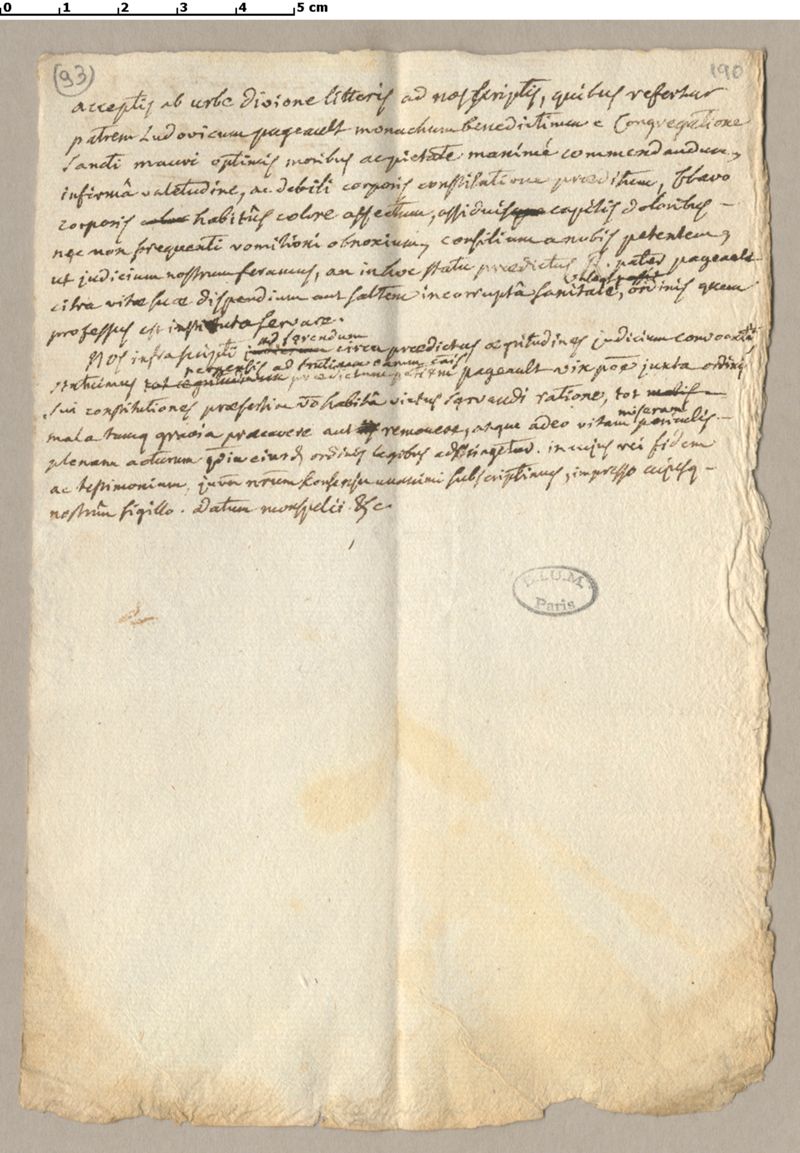 0 1 2 3 4 5 cm
(93)
190
acceptis ab urbe divione litteris ad nos scriptis, quibus refertur
patrem Ludovicum pageault monachum benedictinum e Congregatione
Sancti mauri optimis moribus ac pietate maximé commendandum,
infirmâ valetudine, ac debili corporis constitutione præditum, flavo
corporis habitûs colore affectum, assiduis capitis doloribus –
nec non frequenti vomitioni obnoxium, consilium a nobis petentem,
ut judicium nostrum feramus, an in hoc statu prædictus pater pageault
citra vitæ suæ dispendium aut saltem incorruptâ sanitate, ordinis quem
professus est instituta servare.
ad ferendum
Nos infrascripti circa prædictus ægritudines judicium convocati
perpensis ad trutinam earum causis
statuimus pageault vix posse juxta ordinis
sui constitutiones præsertim habitâ victus servandi ratione, tot
mala tamq gravia præcavere aut removere, atque adeo vitam miseram periculis –
plenam acturum ordinis legibus adstringetur. in cujus rei fidem
ac testimonium, consensu unanimi subscripsimus, impresso cujusq –
nostrûm sigillo. Datum monspelii &c.
B.I.U.M.
Paris